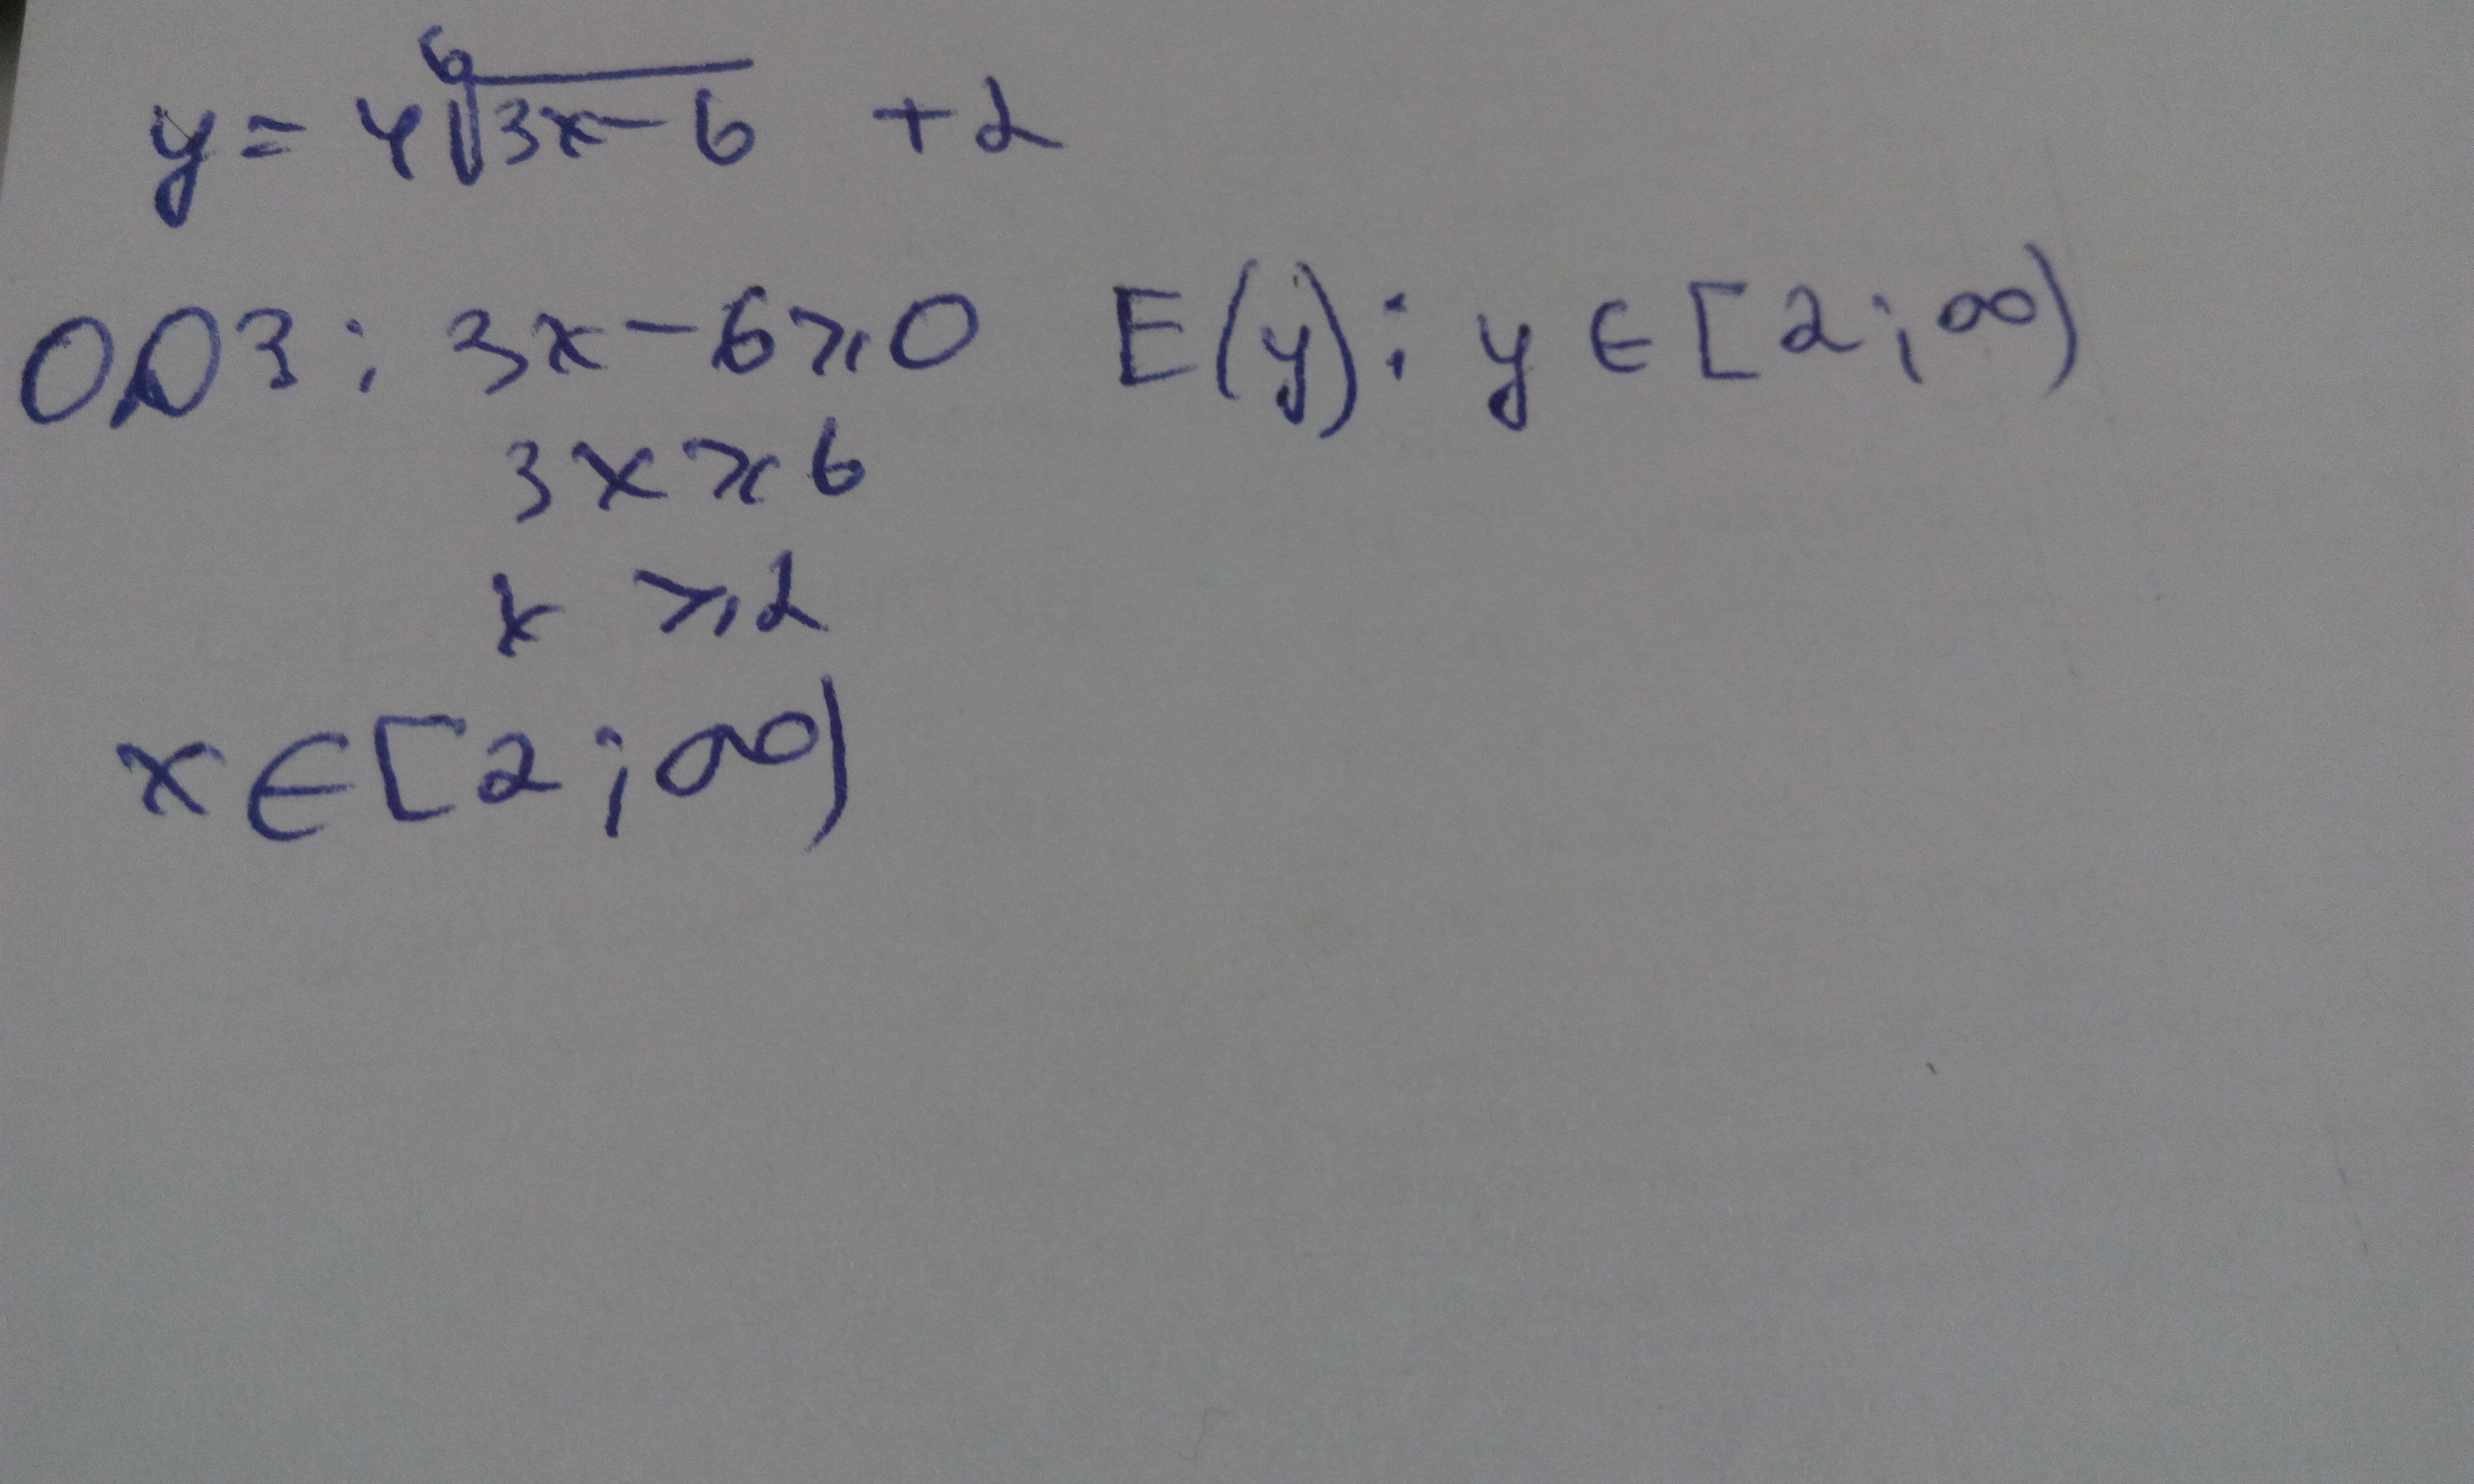 y = 4⁶√(3x-6) + 2
ООФ: 3x - 6 ⩾ 0 E(y): y ∈ [2; ∞)
3x ⩾ 6
x ⩾ 2
x ∈ [2; ∞)